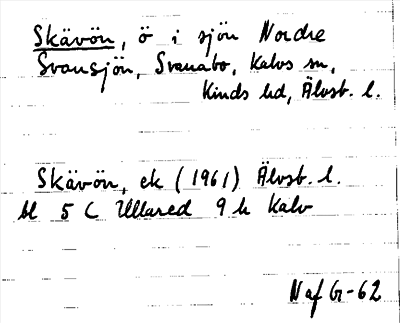 Skävön, ö i sjön Nordre
Svansjön, Svanabo, Kalvs sn,
Kinds hd, Älvsb. l.
Skävön, ek (1961) Älvsb. l.
bl 5 C Ullared 9 h Kalv
Naf G-62